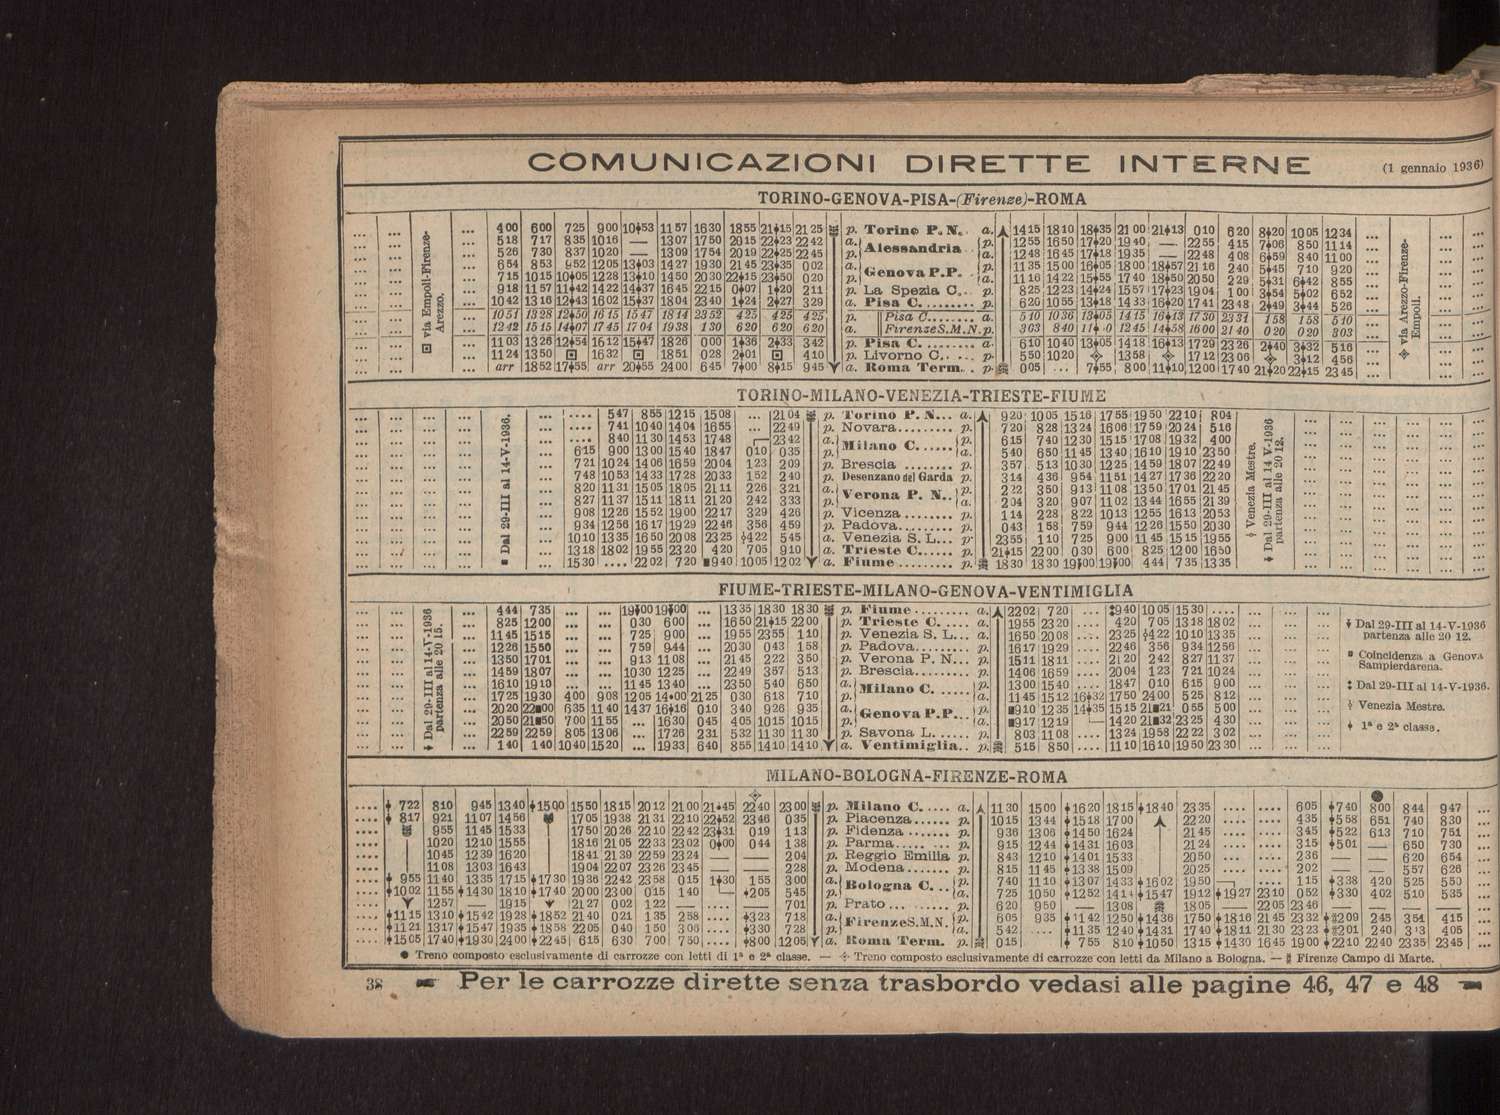 COMUNICAZIONI DIRETTE INTERNE (1 gennaio 1936)
TORINO-GENOVA-PISA-(Firenze)-ROMA
via Empoli-Firenze-Arezzo.
via Arezzo-Firenze-Empoli.
400 600 725 900 10♦53 1157 1630 1855 21♦15 2125 p. Torino P. N. a. 1415 1810 18♦35 2100 21♦13 010 620 8♦20 1005 1234
518 717 835 1016 — 1307 1750 2015 22♦23 2242 a. Alessandria p. 1255 1650 17♦20 1940 — 2255 415 7♦06 850 1114
526 730 837 1020 — 1309 1754 2019 22♦25 2245 p. a. 1248 1645 17♦18 1935 — 2248 408 6♦59 840 1100
654 853 952 1205 13♦03 1427 1930 2145 23♦35 002 a. Genova P.P. p. 1135 1500 16♦05 1800 18♦57 2116 240 5♦45 710 920
715 1015 10♦05 1228 13♦10 1450 2030 22♦15 23♦50 020 p. a. 1116 1422 15♦55 1740 18♦50 2050 229 5♦31 642 855
918 1157 11♦42 1422 14♦37 1645 2215 0♦07 1♦20 211 p. La Spezia C. p. 825 1223 14♦24 1557 17♦23 1904 100 3♦54 502 652
1042 1316 12♦43 1602 15♦37 1804 2340 1♦24 2♦27 329 a. Pisa C. p. 620 1055 13♦18 1433 16♦20 1741 2348 2♦49 3♦44 526
1051 1328 12♦50 1615 1547 1814 2352 425 425 425 p. Pisa C. a. 510 1036 13♦05 1415 16♦13 1730 2331 158 158 510
1242 1515 14♦07 1745 1704 1938 130 620 620 620 a. Firenze S.M.N. p. 303 840 1245 14♦58 1600 2140 020 020 303
1103 1326 12♦54 1612 15♦47 1826 000 1♦36 2♦33 342 p. Pisa C. a. 610 1040 13♦05 1418 16♦13 1729 2326 2♦40 3♦32 516
1124 1350 1632 1851 028 2♦01 410 p. Livorno C. p. 550 1020 1358 1712 2306 3♦12 456
arr 1852 17♦55 arr 20♦55 2400 645 7♦00 8♦15 945 a. Roma Term. p. 005 ... 7♦55 800 11♦10 1200 1740 21♦20 22♦15 2345
TORINO-MILANO-VENEZIA-TRIESTE-FIUME
Dal 29-III al 14-V-1936.
Venezia Mestre.
Dal 29-III al 14-V-1936 partenza alle 20 12.
.... 547 855 1215 1508 ... 2104 p. Torino P. N. a. 920 1005 1516 1755 1950 2210 804
.... 741 1040 1404 1655 ... 2249 p. Novara p. 720 828 1324 1606 1759 2024 516
.... 840 1130 1453 1748 2342 a. Milano C. p. 615 740 1230 1515 1708 1932 400
615 900 1300 1540 1847 010 035 p. a. 540 650 1145 1340 1610 1910 2350
721 1024 1406 1659 2004 123 209 p. Brescia p. 357 513 1030 1225 1459 1807 2249
748 1053 1433 1728 2033 152 240 p. Desenzano del Garda p. 314 436 954 1151 1427 1736 2220
820 1131 1505 1805 2111 226 321 a. Verona P. N. p. 222 350 913 1108 1350 1701 2145
827 1137 1511 1811 2120 242 333 p. a. 204 320 907 1102 1344 1655 2139
908 1226 1552 1900 2217 329 426 p. Vicenza p. 114 228 822 1013 1255 1613 2053
934 1256 1617 1929 2246 356 459 p. Padova p. 043 158 759 944 1226 1550 2030
1010 1335 1650 2008 2325 422 545 a. Venezia S. L. p. 2355 110 725 900 1145 1515 1955
1318 1802 1955 2320 420 705 910 a. Trieste C. p. 21♦15 2200 030 600 825 1200 1650
1530 .... 2202 720 940 1005 1202 a. Fiume p. 1830 1830 1900 1900 444 735 1335
FIUME-TRIESTE-MILANO-GENOVA-VENTIMIGLIA
Dal 29-III al 14-V-1936 partenza alle 20 15.
444 735 ... ... 1900 1900 ... 1335 1830 1830 p. Fiume a. 2202 720 .... 940 1005 1530 ....
825 1200 ... ... 030 600 ... 1650 21♦15 2200 p. Trieste C. a. 1955 2320 .... 420 705 1318 1802
1145 1515 ... ... 725 900 ... 1955 2355 110 p. Venezia S. L. a. 1650 2008 .... 2325 422 1010 1335
1226 1550 ... ... 759 944 ... 2030 043 158 p. Padova p. 1617 1929 .... 2246 356 934 1256
1350 1701 ... ... 913 1108 ... 2145 222 350 p. Verona P. N. p. 1511 1811 .... 2120 242 827 1137
1459 1807 ... ... 1030 1225 ... 2249 357 513 p. Brescia p. 1406 1659 .... 2004 123 721 1024
1610 1910 ... ... 1145 1340 ... 2350 540 650 a. Milano C. p. 1300 1540 .... 1847 010 615 900
1725 1930 400 908 1205 14♦00 2125 030 618 710 p. a. 1145 1512 16♦32 1750 2400 525 812
2020 2200 635 1140 1437 16♦16 010 340 926 935 a. Genova P.P. p. 910 1235 14♦35 1515 2121 055 500
2050 2150 700 1155 ... 1630 045 405 1015 1015 p. a. 917 1219 — 1420 2132 2325 430
2259 2259 805 1306 ... 1726 231 532 1130 1130 p. Savona L. p. 803 1108 .... 1324 1958 2222 302
140 140 1040 1520 ... 1933 640 855 1410 1410 a. Ventimiglia p. 515 850 .... 1110 1610 1950 2330
Dal 29-III al 14-V-1936 partenza alle 20 12.
Coincidenza a Genova Sampierdarena.
Dal 29-III al 14-V-1936.
Venezia Mestre.
1ª e 2ª classe.
MILANO-BOLOGNA-FIRENZE-ROMA
♦722 810 945 1340 ♦1500 1550 1815 2012 2100 21♦45 2240 2300 p. Milano C. a. 1130 1500 ♦1620 1815 ♦1840 2335 .... .... 605 ♦740 800 844 947
♦817 921 1107 1456 1705 1938 2131 2210 22♦52 2346 035 p. Piacenza p. 1015 1344 ♦1518 1700 2220 .... .... 435 ♦558 651 740 830
955 1145 1533 1750 2026 2210 2242 23♦31 019 113 p. Fidenza p. 936 1306 ♦1450 1624 2145 .... .... 345 ♦522 613 710 751
1020 1210 1555 1816 2105 2233 2302 0♦00 044 138 p. Parma p. 915 1244 ♦1431 1603 2124 .... .... 315 ♦501 — 650 730
1045 1239 1620 1841 2139 2259 2324 — — 204 p. Reggio Emilia p. 843 1210 ♦1401 1533 2050 .... .... 236 — — 620 654
1108 1303 1643 1904 2207 2326 2345 — — 228 p. Modena p. 815 1145 ♦1338 1509 2025 .... .... 202 — — 557 626
♦955 1140 1335 1715 ♦1730 1936 2242 2358 015 1♦30 155 300 a. Bologna C. p. 740 1110 ♦1307 1433 ♦1602 1950 — .... 115 ♦338 420 525 550
♦1002 1155 ♦1430 1810 ♦1740 2000 2300 015 140 — ♦205 545 p. a. 725 1050 ♦1252 1414 ♦1547 1912 ♦1927 2310 052 ♦330 402 510 535
1257 — 1915 2127 002 122 — .... — 701 p. Prato p. 620 950 — 1308 1805 — 2205 2346 — — — —
♦1115 1310 ♦1542 1928 ♦1852 2140 021 135 258 .... ♦323 718 a. Firenze S.M.N. p. 605 935 ♦1142 1250 ♦1436 1750 ♦1816 2145 2332 209 245 354 415
♦1121 1317 ♦1547 1935 ♦1858 2205 040 150 306 .... ♦330 728 p. a. 542 .... ♦1135 1240 ♦1431 1740 ♦1811 2130 2323 201 240 405
♦1505 1740 ♦1930 2400 ♦2245 615 630 700 750 .... ♦800 1205 a. Roma Term. p. 015 ♦755 810 ♦1050 1315 ♦1430 1645 1900 ♦2210 2240 2335 2345
● Treno composto esclusivamente di carrozze con letti di 1ª e 2ª classe. — Treno composto esclusivamente di carrozze con letti da Milano a Bologna. — Firenze Campo di Marte.
38 Per le carrozze dirette senza trasbordo vedasi alle pagine 46, 47 e 48